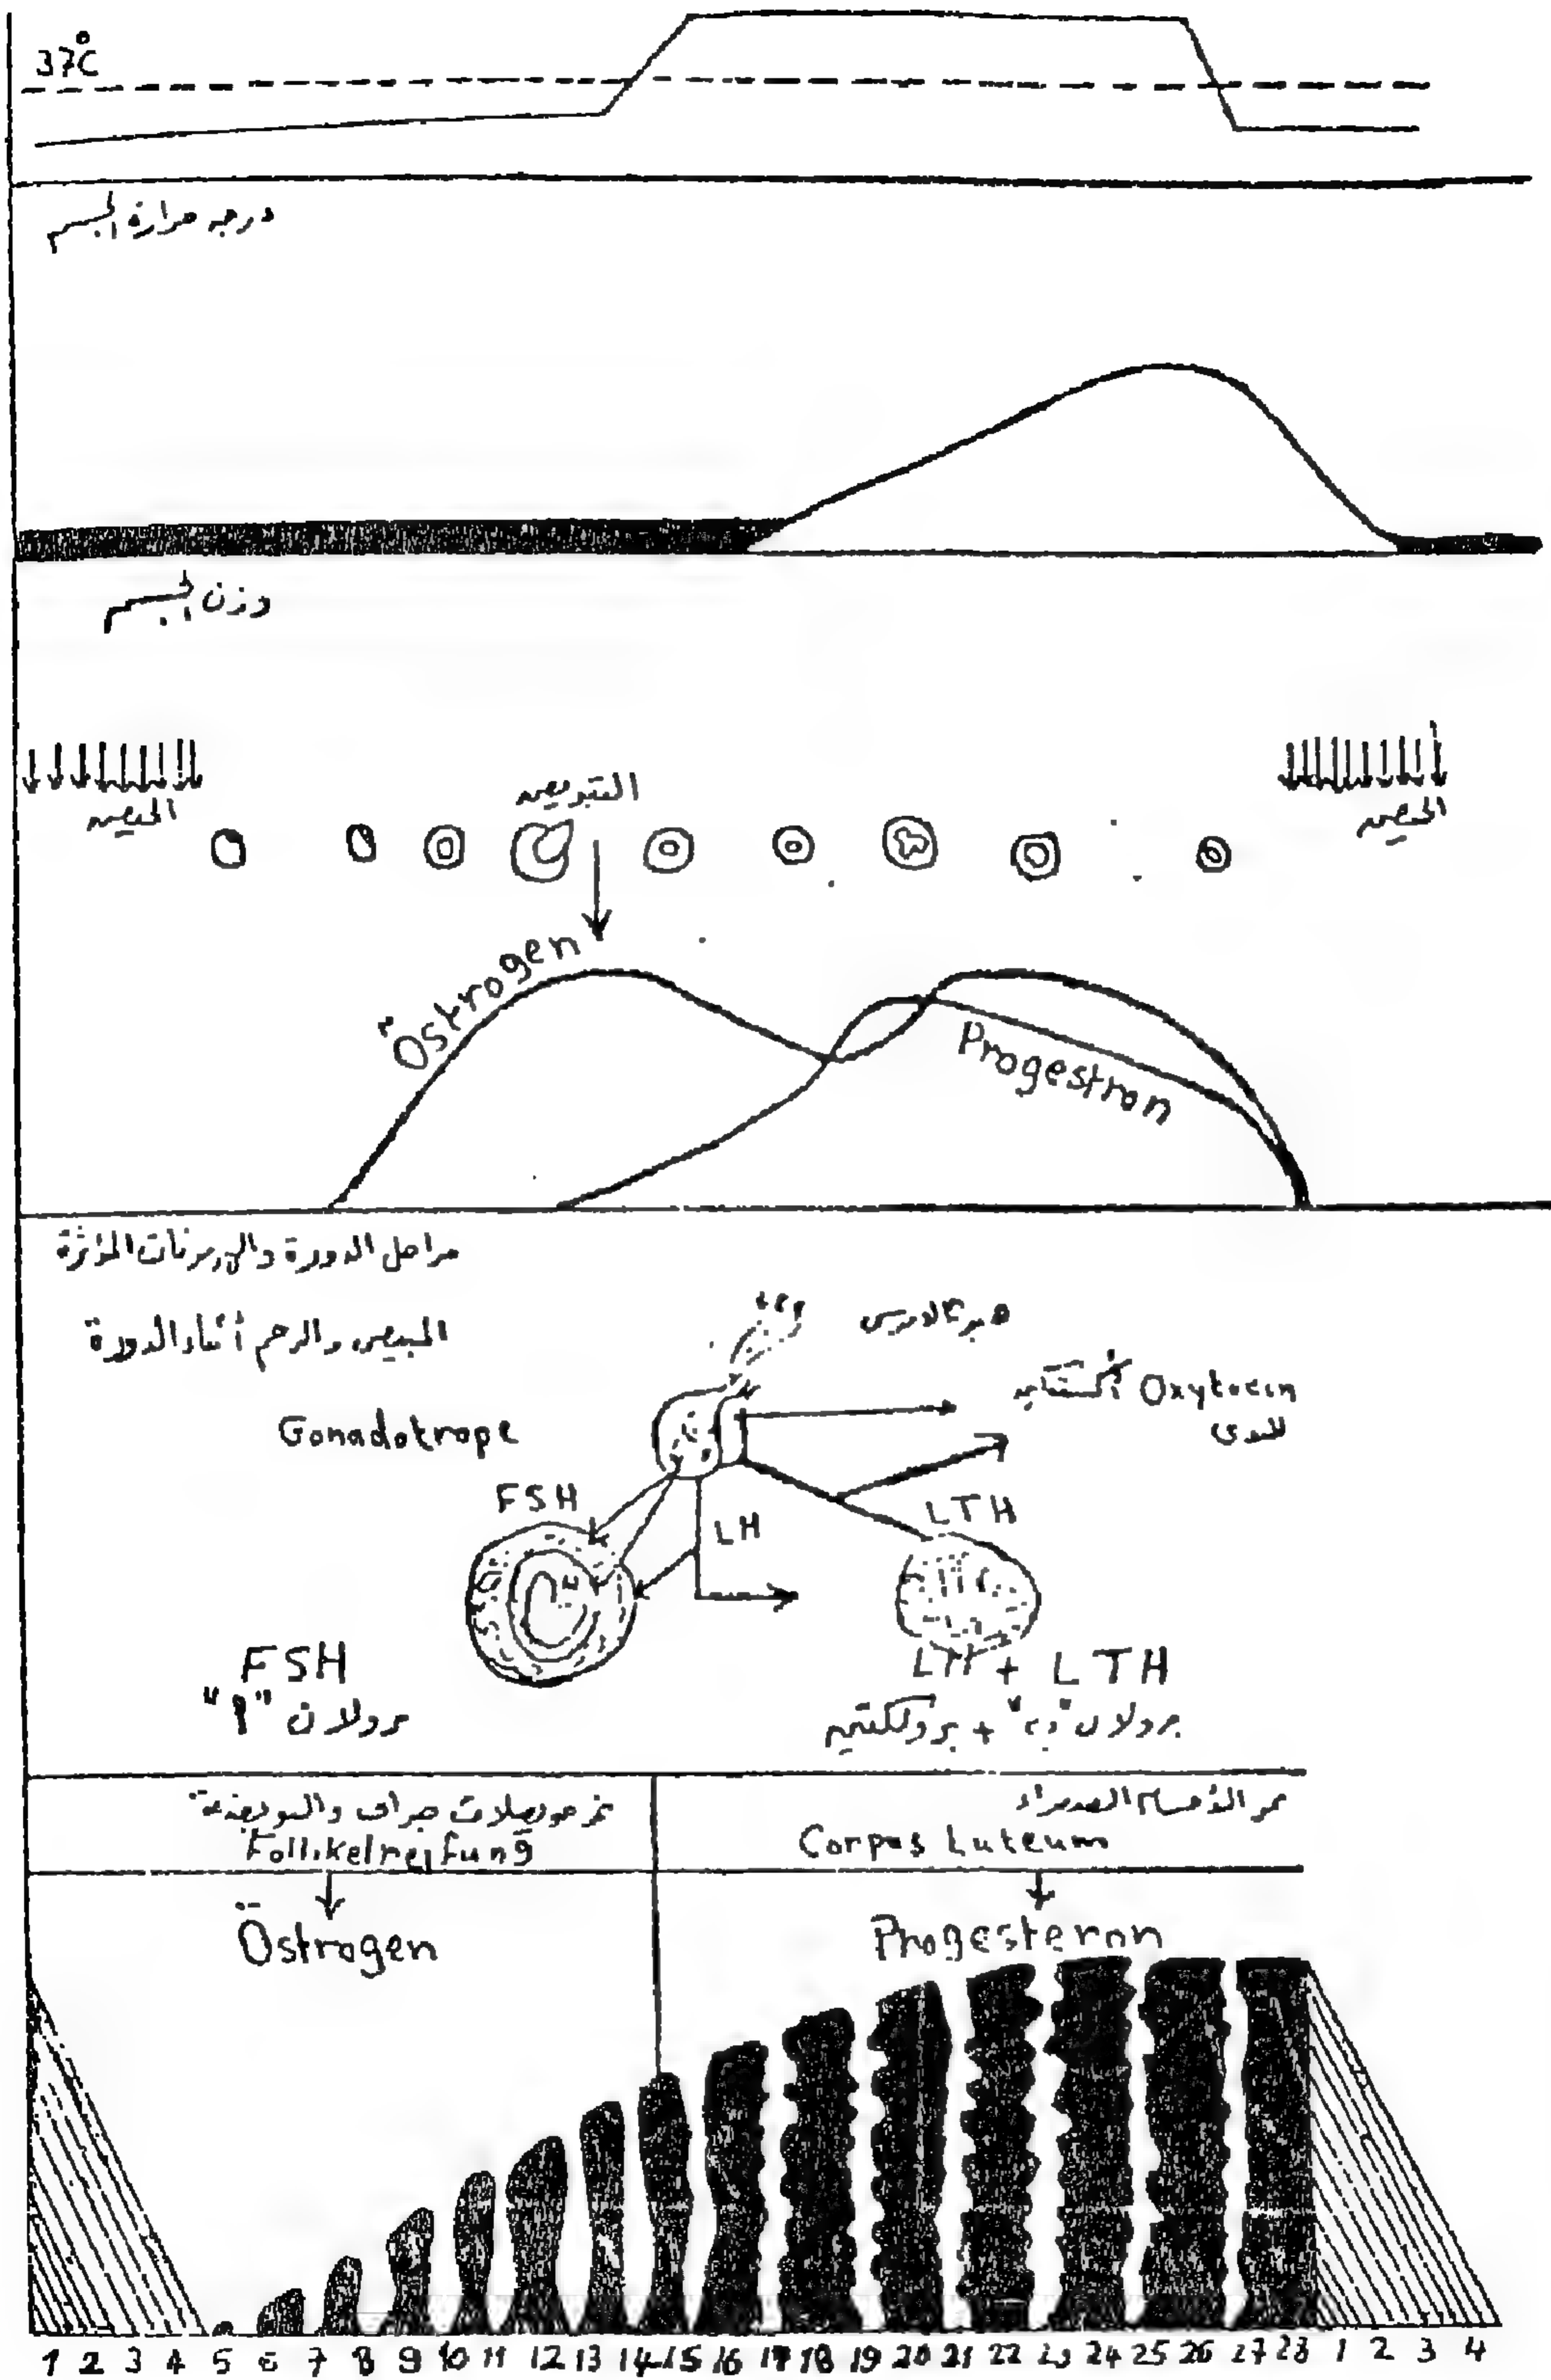 37°C
درجه حرارة الجسم
وزن الجسم
الحيض
التبويض
الحيض
Östrogen
Progestron
مراحل الدورة والهرمونات المؤثرة
المبيض والرحم أثناء الدورة
Gonadotrope
Oxytocin
للثدى
FSH
LH
LTH
FSH
LTH
برولان "أ"
برولان "ب" + برولكتين
جراف والبويضة
نمو الأجسام الصفراء
Follikelreifung
Corpus Luteum
Östrogen
Progesteron
1 2 3 4 5 6 7 8 9 10 11 12 13 14 15 16 17 18 19 20 21 22 23 24 25 26 27 28 1 2 3 4